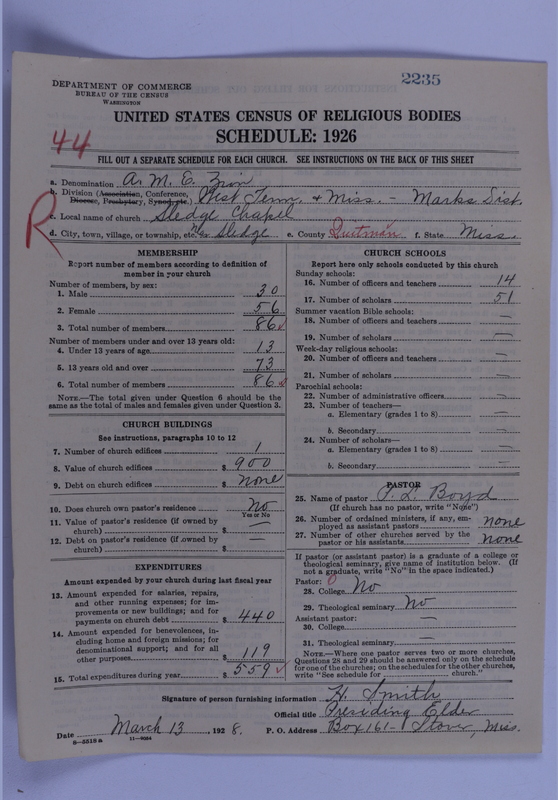 2235
DEPARTMENT OF COMMERCE
BUREAU OF THE CENSUS
WASHINGTON
UNITED STATES CENSUS OF RELIGIOUS BODIES
SCHEDULE: 1926
44
FILL OUT A SEPARATE SCHEDULE FOR EACH CHURCH. SEE INSTRUCTIONS ON THE BACK OF THIS SHEET
R
a. Denomination A. M. E. Zion
b. Division (Association, Conference, Diocese, Presbytery, Synod, etc.) West Tenn. & Miss. - Marks Dist.
c. Local name of church Sledge Chapel
d. City, town, village, or township, etc. Sledge e. County Quitman f. State Miss.
MEMBERSHIP
Report number of members according to definition of member in your church
Number of members, by sex:
1. Male 30
2. Female 56
3. Total number of members 86
Number of members under and over 13 years old:
4. Under 13 years of age 13
5. 13 years old and over 73
6. Total number of members 86
NOTE.—The total given under Question 6 should be the same as the total of males and females given under Question 3.
CHURCH BUILDINGS
See instructions, paragraphs 10 to 12
7. Number of church edifices 1
8. Value of church edifices $ 900
9. Debt on church edifices $ none
10. Does church own pastor's residence No
Yes or No
11. Value of pastor's residence (if owned by church) $ —
12. Debt on pastor's residence (if owned by church) $ —
EXPENDITURES
Amount expended by your church during last fiscal year
13. Amount expended for salaries, repairs, and other running expenses; for improvements or new buildings; and for payments on church debt $ 440
14. Amount expended for benevolences, including home and foreign missions; for denominational support; and for all other purposes $ 119
15. Total expenditures during year $ 559
CHURCH SCHOOLS
Report here only schools conducted by this church
Sunday schools:
16. Number of officers and teachers 14
17. Number of scholars 51
Summer vacation Bible schools:
18. Number of officers and teachers —
19. Number of scholars —
Week-day religious schools:
20. Number of officers and teachers —
21. Number of scholars —
Parochial schools:
22. Number of administrative officers —
23. Number of teachers—
a. Elementary (grades 1 to 8) —
b. Secondary —
24. Number of scholars—
a. Elementary (grades 1 to 8) —
b. Secondary —
PASTOR
25. Name of pastor P. L. Boyd
(If church has no pastor, write "None")
26. Number of ordained ministers, if any, employed as assistant pastors none
27. Number of other churches served by the pastor or his assistants none
If pastor (or assistant pastor) is a graduate of a college or theological seminary, give name of institution below. (If not a graduate, write "No" in the space indicated.)
Pastor: 0
28. College No
29. Theological seminary No
Assistant pastor:
30. College —
31. Theological seminary —
NOTE.—Where one pastor serves two or more churches, Questions 28 and 29 should be answered only on the schedule for one of the churches; on the schedules for the other churches, write "See schedule for church."
Signature of person furnishing information H. Smith
Official title Presiding Elder
Date March 13, 1928. P. O. Address Box 161- Stover, Miss.
8-5518a 11-9034